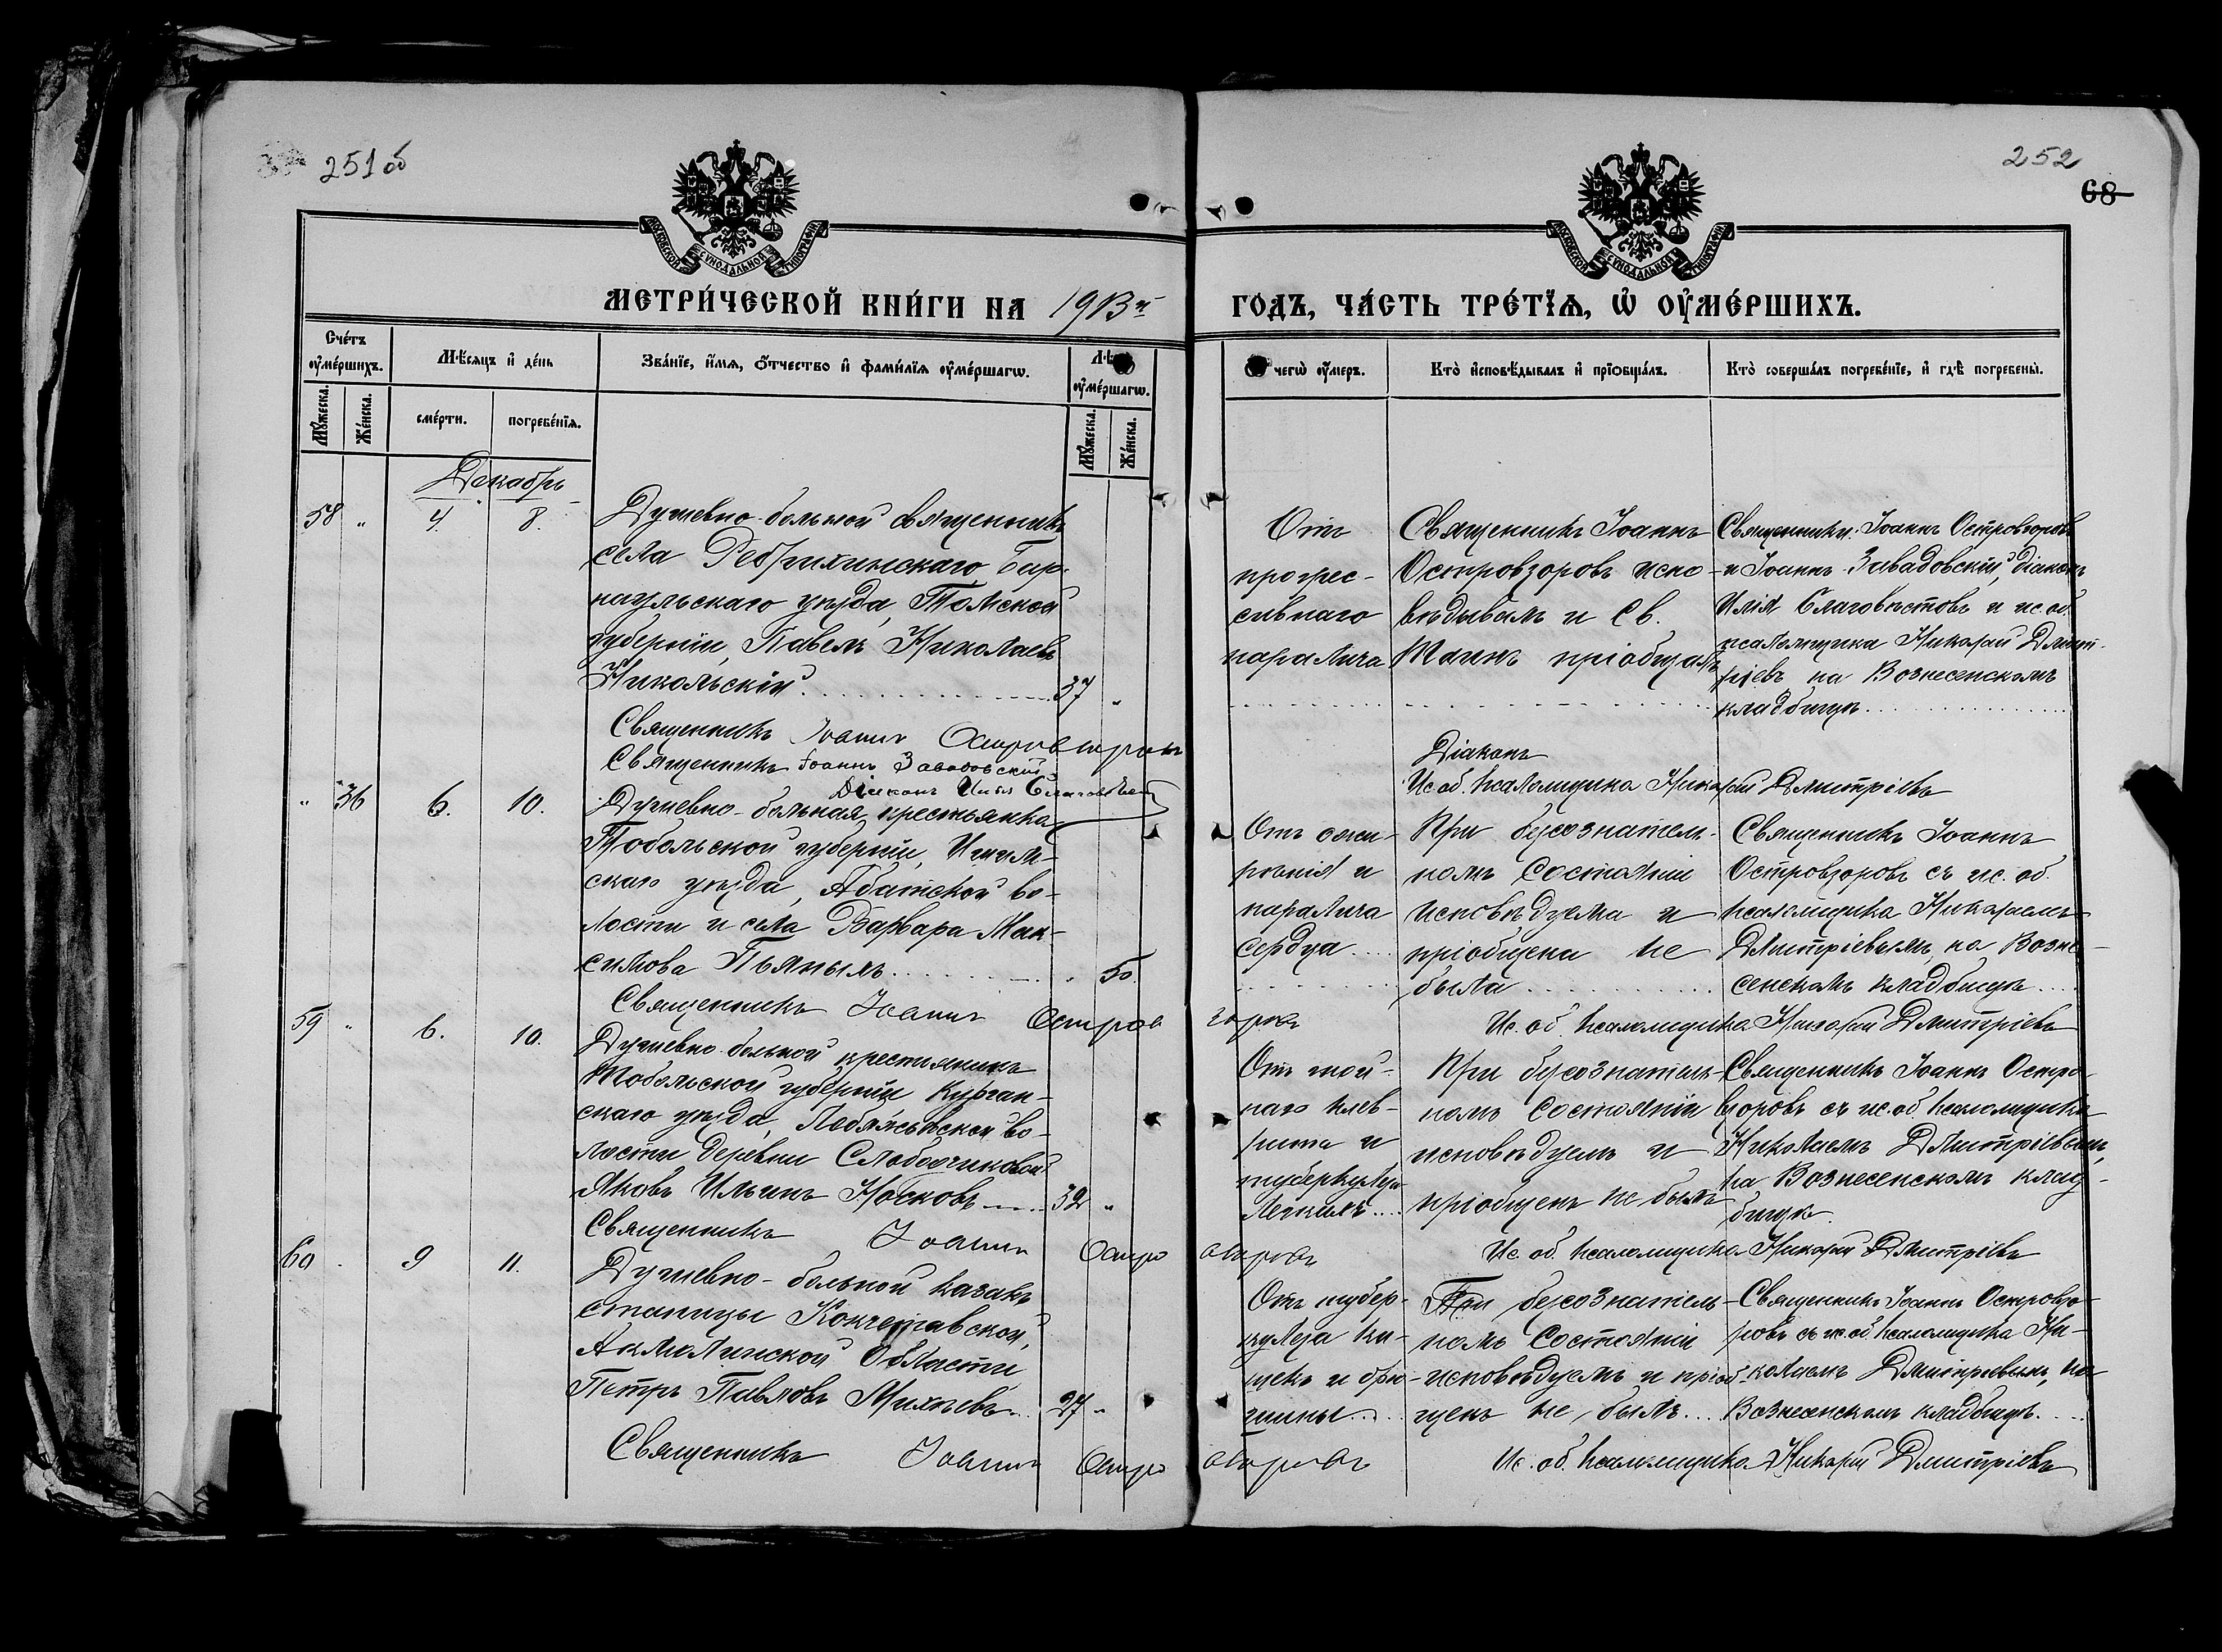 251об
252
68
МОСКОВСКОЙ СѴНОДАЛЬНОЙ ТИПОГРАФІИ
МОСКОВСКОЙ СѴНОДАЛЬНОЙ ТИПОГРАФІИ
МЕТРИ́ЧЕСКОЙ КНИ́ГИ НА 1913й ГОДЪ, ЧА́СТЬ ТРЕ́ТЇѦ, Ѡ҆ ОУ҆МЕ́РШИХЪ.
Сче́тъ оу҆ме́ршихъ.
Мѣ́сѧцъ и҆ де́нь
Зва́нїе, и҆́мѧ, ѻ҆́тчество и҆ фами́лїѧ оу҆ме́ршагѡ.
Лѣ оу҆ме́ршагѡ.
чегѡ̀ оу҆́меръ.
Кто̀ и҆сповѣ́дывалъ и҆ прїѻбща́лъ.
Кто̀ соверша́лъ погребе́нїе, и҆ гдѣ̀ погребены̀.
Мꙋ́жеска.
Же́нска.
сме́рти.
погребе́нїѧ.
Мꙋ́жеска.
Же́нска.
Декабрь
58 " 4. 8.
Душевно-больной священникъ
села Ребрихинскаго, Бар-
наульскаго уѣзда, Томской
губерніи, Павелъ Николаевъ
Никольскій 37 "
Отъ
прогрес-
сивнаго
паралича
Священникъ Іоаннъ
Островзоровъ испо-
вѣдывалъ и Св.
Таинъ пріобщалъ
Священники: Іоаннъ Островзоровъ
и Іоаннъ Завадовскій, діаконъ
Илія Благовѣстовъ и ис. об.
псаломщика Николай Дмит-
ріевъ на Вознесенскомъ
кладбищѣ
Священникъ Іоаннъ Островзоровъ
Священникъ Іоаннъ Завадовскій
Діаконъ Илья Благовѣстовъ
Діаконъ
Ис. об. псаломщика Николай Дмитріевъ
" 36 6. 10.
Душевно-больная крестьянка
Тобольской губерніи, Ишим-
скаго уѣзда, Абатской во-
лости и села Варвара Мак-
симова Пьяныхъ " 50.
Отъ ожи-
рѣнія и
паралича
сердца
При безсознатель-
номъ состояніи
исповѣдуема и
пріобщена не
была
Священникъ Іоаннъ
Островзоровъ съ ис. об.
псаломщика Николаемъ
Дмитріевымъ, на Возне-
сенскомъ кладбищѣ
Священникъ Іоаннъ Островзоровъ
Ис. об. псаломщика Николай Дмитріевъ
59 " 6. 10.
Душевно-больной крестьянинъ
Тобольской губерніи Курган-
скаго уѣзда, Лебяжьевской во-
лости деревни Слободчиковой
Яковъ Ильинъ Носковъ 32 "
Отъ гной-
наго плев-
рита и
туберкулеза
легкихъ
При безсознатель-
номъ состояніи
исповѣдуемъ и
пріобщенъ не былъ
Священникъ Іоаннъ Остро-
взоровъ съ ис. об. псаломщика
Николаемъ Дмитріевымъ,
на Вознесенскомъ клад-
бищѣ.
Священникъ Іоаннъ Островзоровъ
Ис. об. псаломщика Николай Дмитріевъ
60 9 11.
Душевно-больной казакъ
станицы Кокчетавской,
Акмолинской области
Петръ Павловъ Михѣевъ 27 "
Отъ тубер-
кулеза ки-
шекъ и брю-
шины
При безсознатель-
номъ состояніи
исповѣдуемъ и пріоб-
щенъ не былъ
Священникъ Іоаннъ Островзо-
ровъ съ ис. об. псаломщика Ни-
колаемъ Дмитріевымъ, на
Вознесенскомъ кладбищѣ
Священникъ Іоаннъ Островзоровъ
Ис. об. псаломщика Николай Дмитріевъ